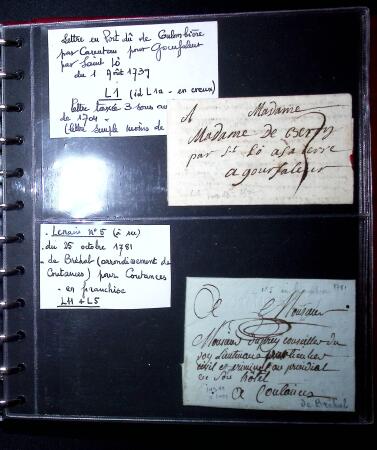 Lettre en Port dû de Coulombière
par Carentan pour Gourfaleur
par Saint Lô
du 1 Août 1739
L1 (id L1a - en creux)
lettre taxée 3 sous au
de 1704
(lettre simple moins de
A Madame
Madame de
par St Lô a la terre
a gourfaleur
Lenain N° 5 (à su)
du 25 octobre 1781
de Bréhal (arrondissement de
Coutances) pour Coutances
en franchise
L11 + L5
1781
A Monsieur
Monsieur conseiller du
roy Lieutenant particulier
civil et criminel au presidial
en son hôtel
A Coutances
de Bréhal